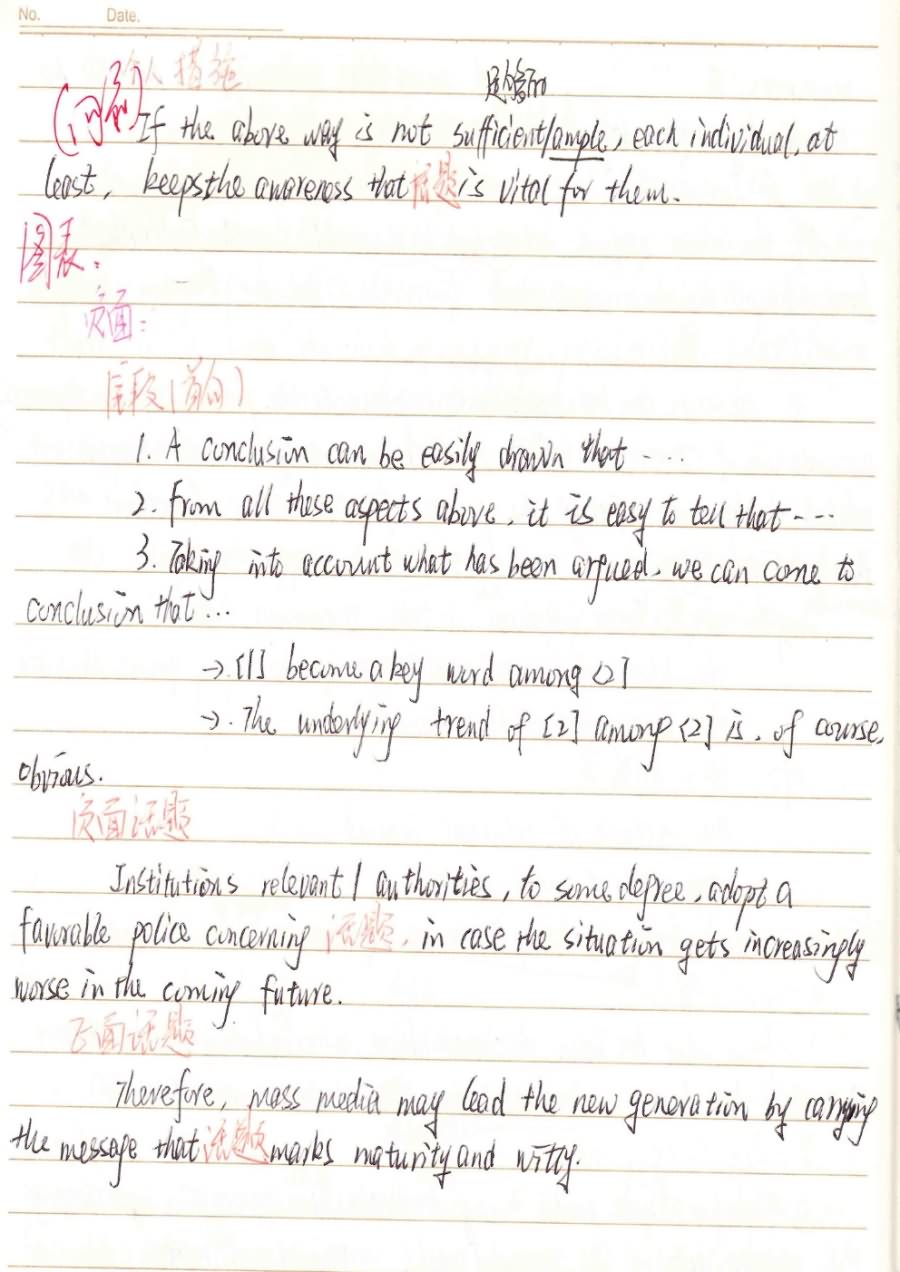 No. Date.
个人措施
足够的
(问句) If the above way is not sufficient/ample, each individual, at
least, keeps the awareness that 话题 is vital for them.
图表:
页面:
尾段(首句)
1. A conclusion can be easily drawn that ····
2. From all these aspects above, it is easy to tell that ----
3. Taking into account what has been argued, we can come to
conclusion that...
→ [1] become a key word among [2]
→. The underlying trend of [2] among [2] is, of course,
obvious.
页面话题
Institutions relevant / authorities, to some degree, adopt a
favorable police concerning 话题, in case the situation gets increasingly
worse in the coming future.
正面话题
Therefore, mass media may lead the new generation by carrying
the message that 话题 marks maturity and witty.